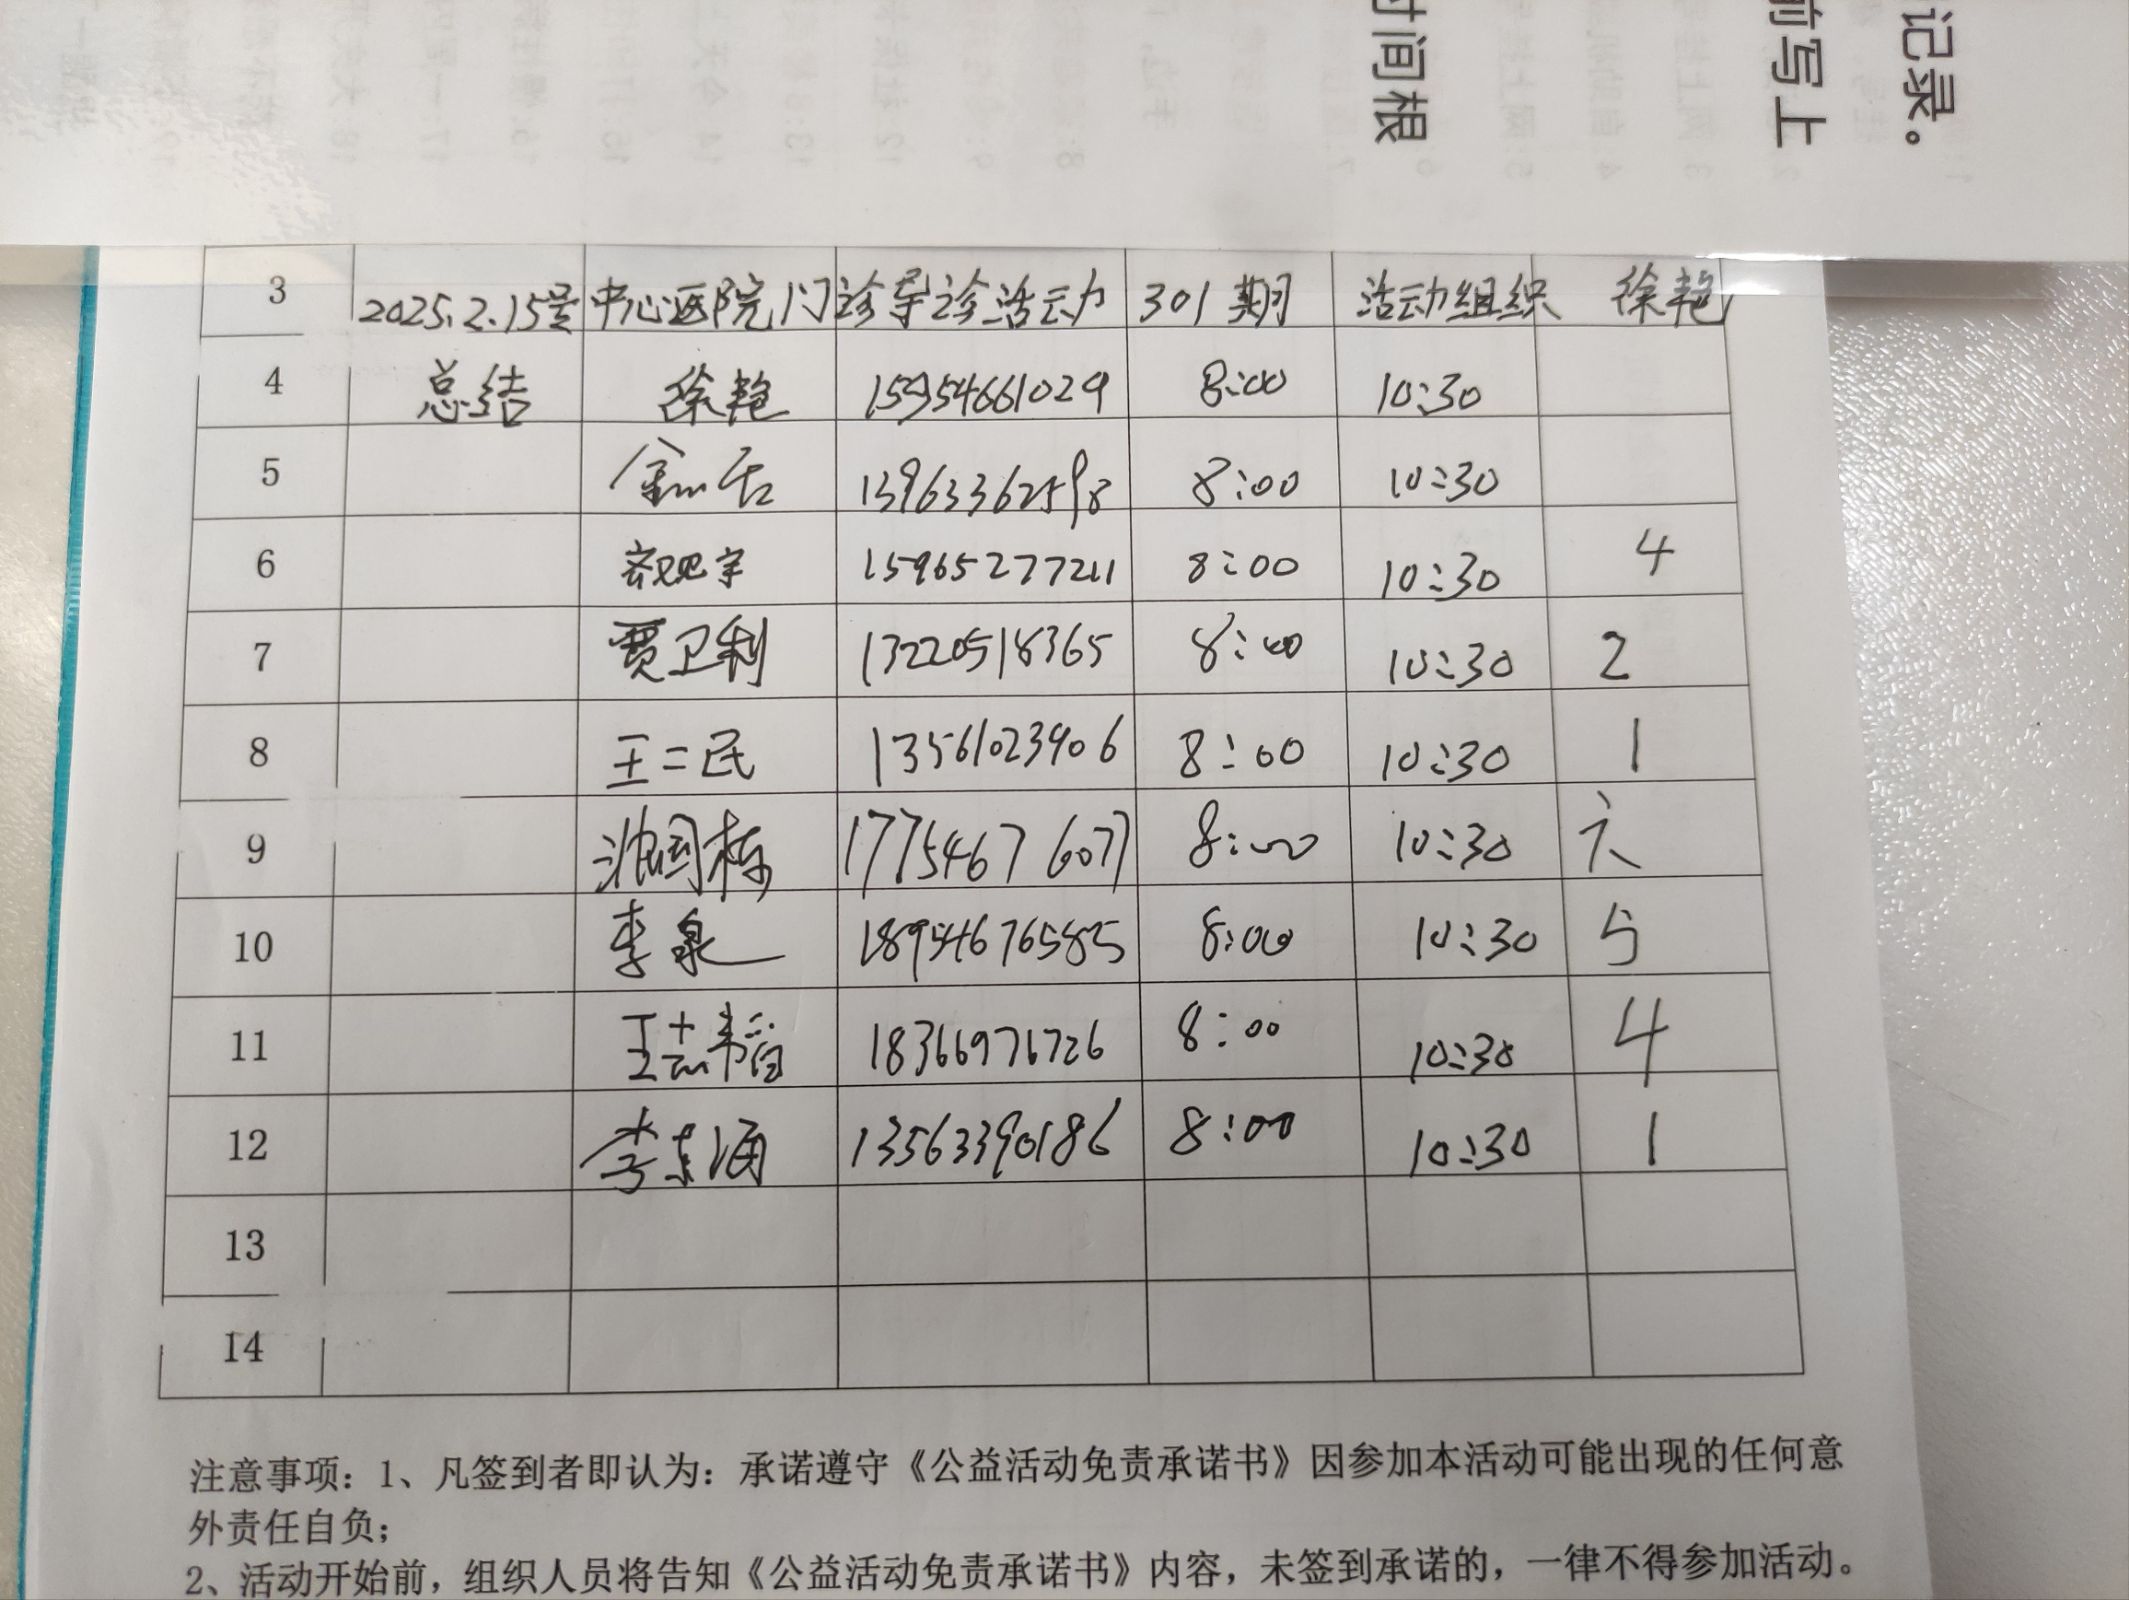 记录。
前写上
时间根
3 2025.2.15号 中心医院门诊导诊活动 301期 活动组织 徐艳
4 总结 徐艳 15954661029 8:00 10:30
5 8:00 10:30
6 15965277211 8:00 10:30 4
7 贾卫利 13220518365 8:00 10:30 2
8 王二民 13561023906 8:00 10:30 1
9 17754676077 8:00 10:30 六
10 李泉 18954676585 8:00 10:30 5
11 王志韬 18366976726 8:00 10:30 4
12 李东海 13563390186 8:00 10:30 1
13
14
注意事项：1、凡签到者即认为：承诺遵守《公益活动免责承诺书》因参加本活动可能出现的任何意
外责任自负；
2、活动开始前，组织人员将告知《公益活动免责承诺书》内容，未签到承诺的，一律不得参加活动。